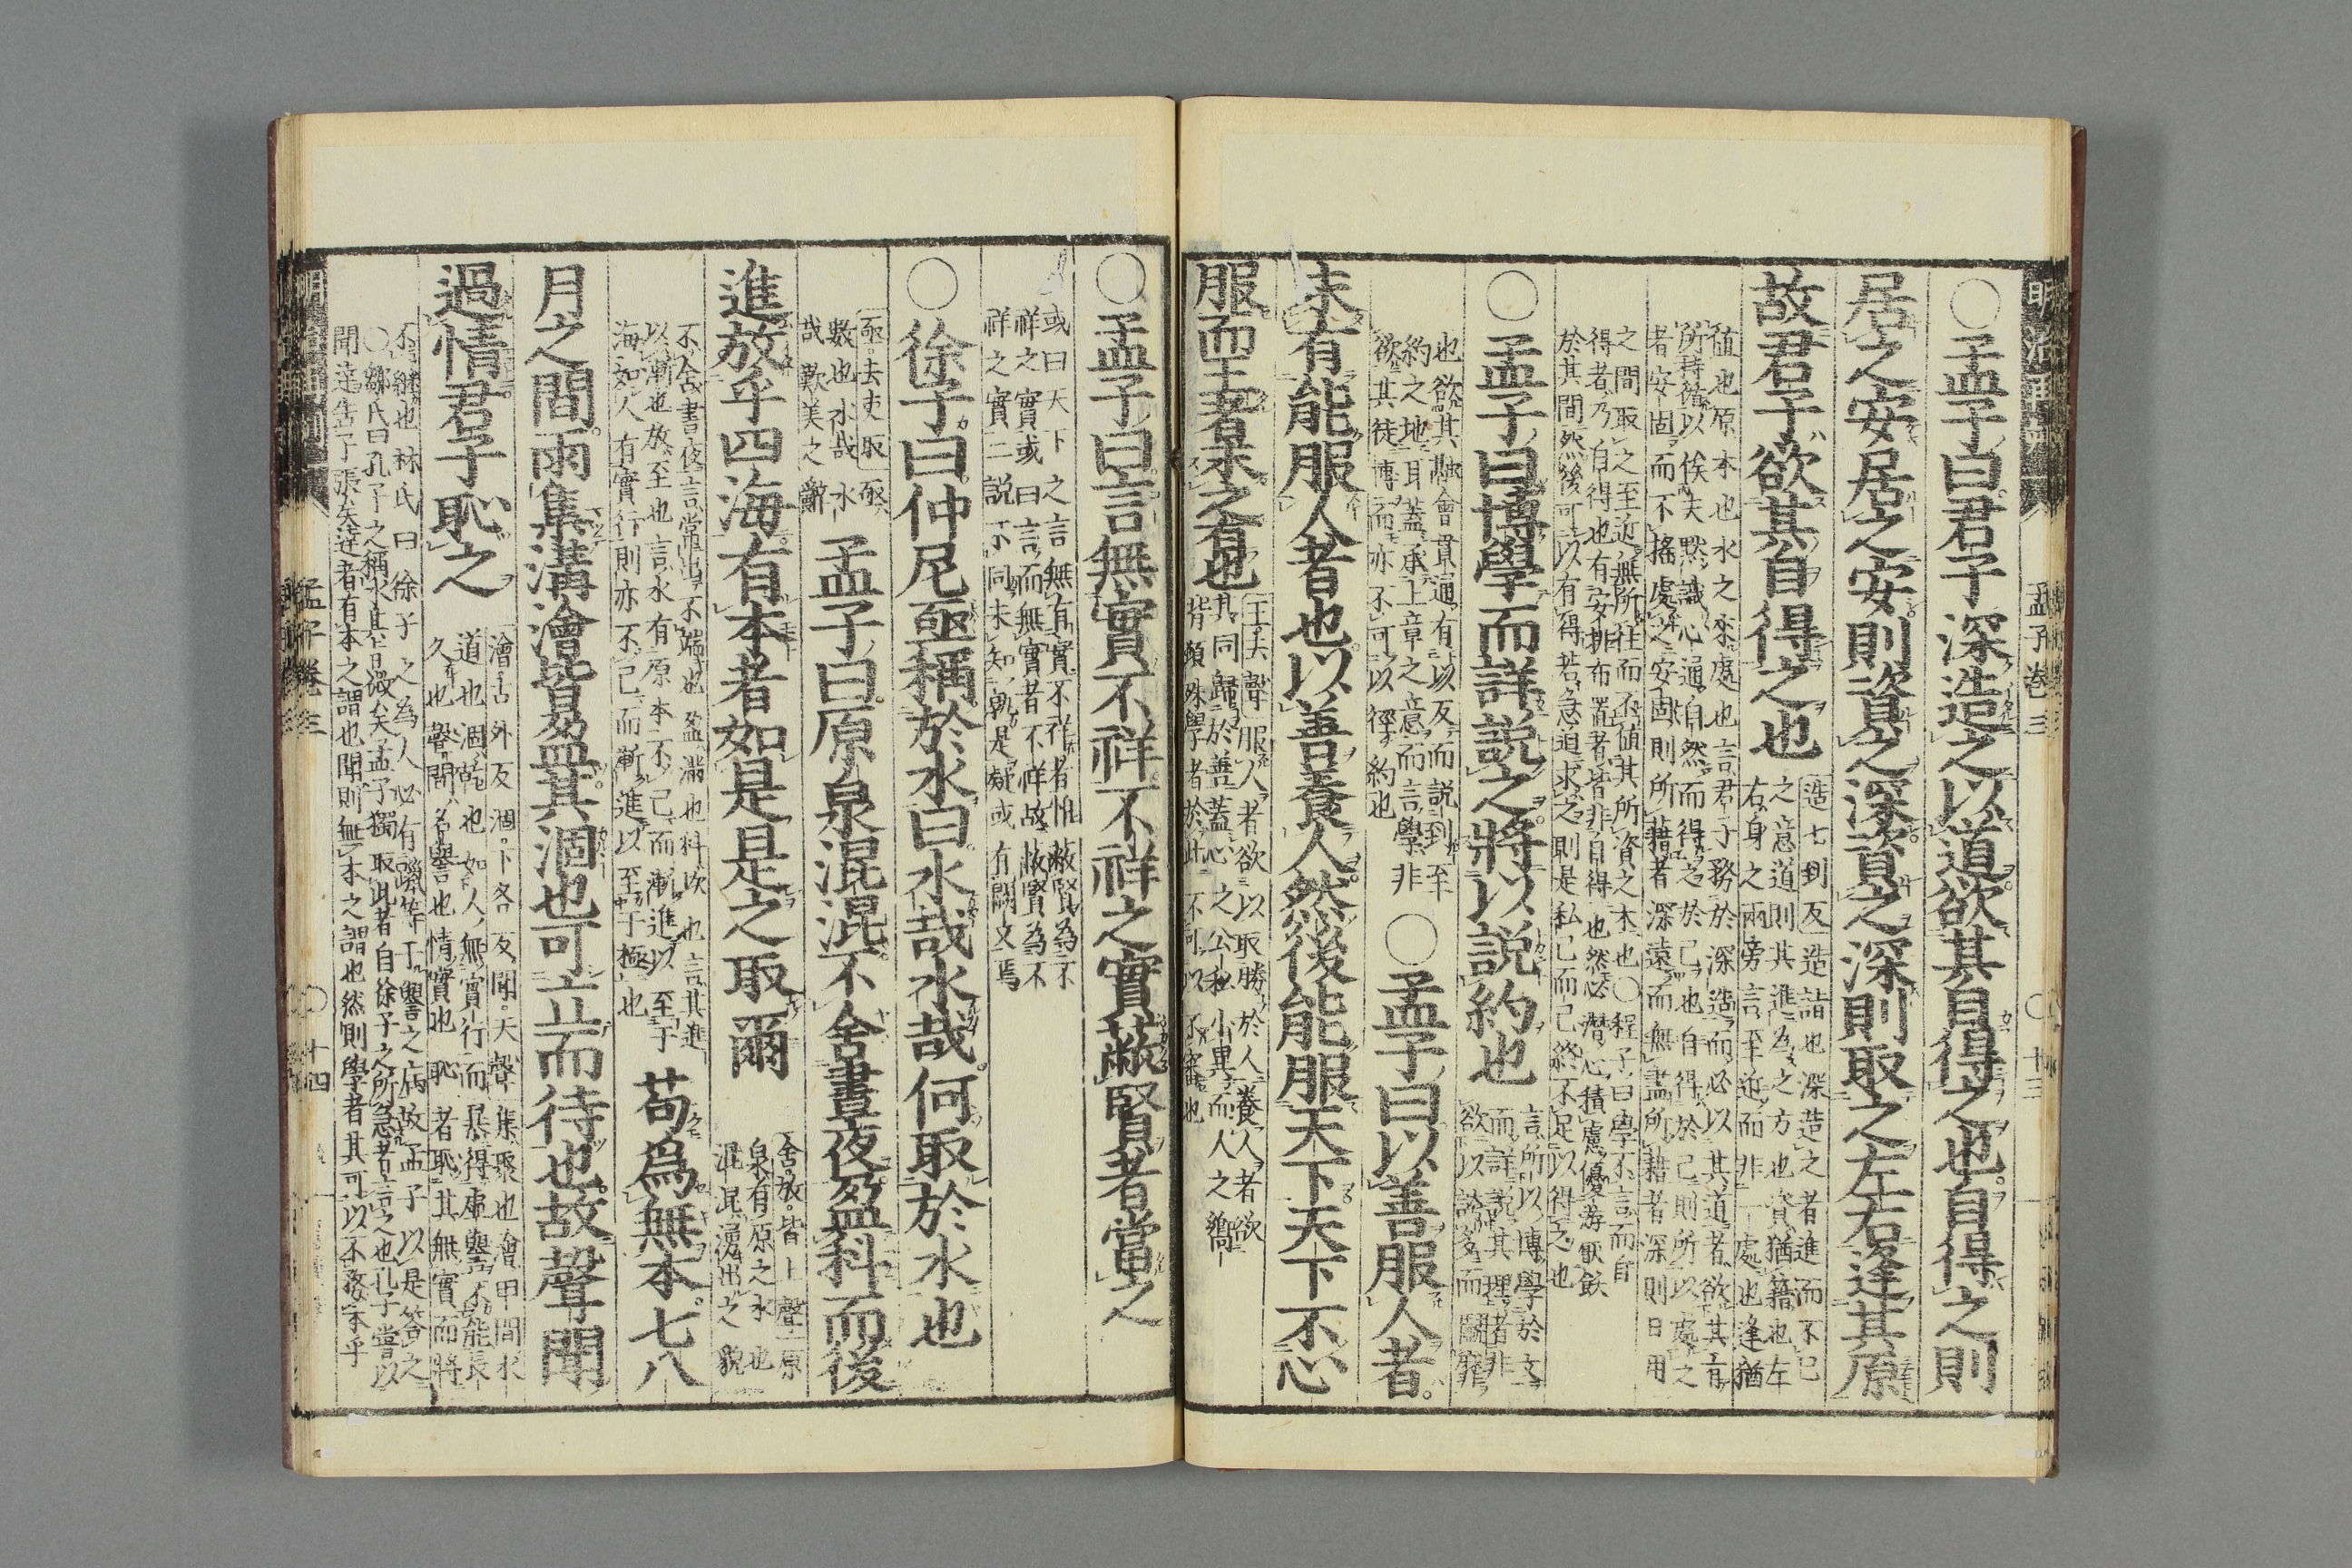 孟子卷三
十三
○孟子曰君子深造之以道欲其自得之也自得之則
居之安居之安則資之深資之深則取之左右逢其原
故君子欲其自得之也
造七到反造詣也深造之者進而不已
之意道則其進為之方也資猶藉也左
右身之兩旁言至近而非一處也逢猶
值也原本也水之來處也言君子務於深造而必以其道者欲其有
所持循以俟夫默識心通自然而得之於己也自得於己則所以處之
者安固而不搖處之安固則所藉者深遠而無盡所藉者深則日用
之間取之至近無所往而不值其所資之本也○程子曰學不言而自
得者乃自得也有安排布置者皆非自得也然必潛心積慮優游厭飫
於其間然後可以有得若急迫求之則是私己而已終不足以得之也
○孟子曰博學而詳說之將以說約也
言所以博學於文
而詳說其理者非
欲以誇多而鬬靡
也欲其融會貫通有以反而說到至
約之地耳蓋承上章之意而言學非
欲其徒博而亦不可以徑約也
○孟子曰以善服人者
未有能服人者也以善養人然後能服天下天下不心
服而王者未之有也
王去聲服人者欲以取勝於人養人者欲
其同歸於善蓋心之公私小異而人之嚮
背頓殊學者於此不可以不審也
○孟子曰言無實不祥不祥之實蔽賢者當之
或曰天下之言無有實不祥者惟蔽賢為不
祥之實或曰言而無實者不祥故蔽賢為不
祥之實二說不同未知孰是疑或有闕文焉
○徐子曰仲尼亟稱於水曰水哉水哉何取於水也
亟去吏取亟
數也水哉水
哉歎美之辭
孟子曰原泉混混不舍晝夜盈科而後
進放乎四海有本者如是是之取爾
舍放皆上聲原
泉有原之水也
混混湧出之貌
不舍晝夜言常出不竭也盈滿也科坎也言其進
以漸也放至也言水有原本不已而漸進以至于
海如人有實行則亦不已而漸進以至于極也
苟爲無本七八
月之間雨集溝澮皆盈其涸也可立而待也故聲聞
過情君子恥之
澮古外反涸下各反聞去聲集聚也澮田間水
道也涸乾也如人無實行而暴得虛譽不能長
久也聲聞名譽也情實也恥者恥其無實而將
不繼也林氏曰徐子之為人必有躐等干譽之病故孟子以是答之
○鄒氏曰孔子之稱水其旨微矣孟子獨取此者自徐子之所急者言之也孔子嘗以
聞達告子張矣達者有本之謂也聞則無本之謂也然則學者其可以不務本乎
孟子卷三
十四